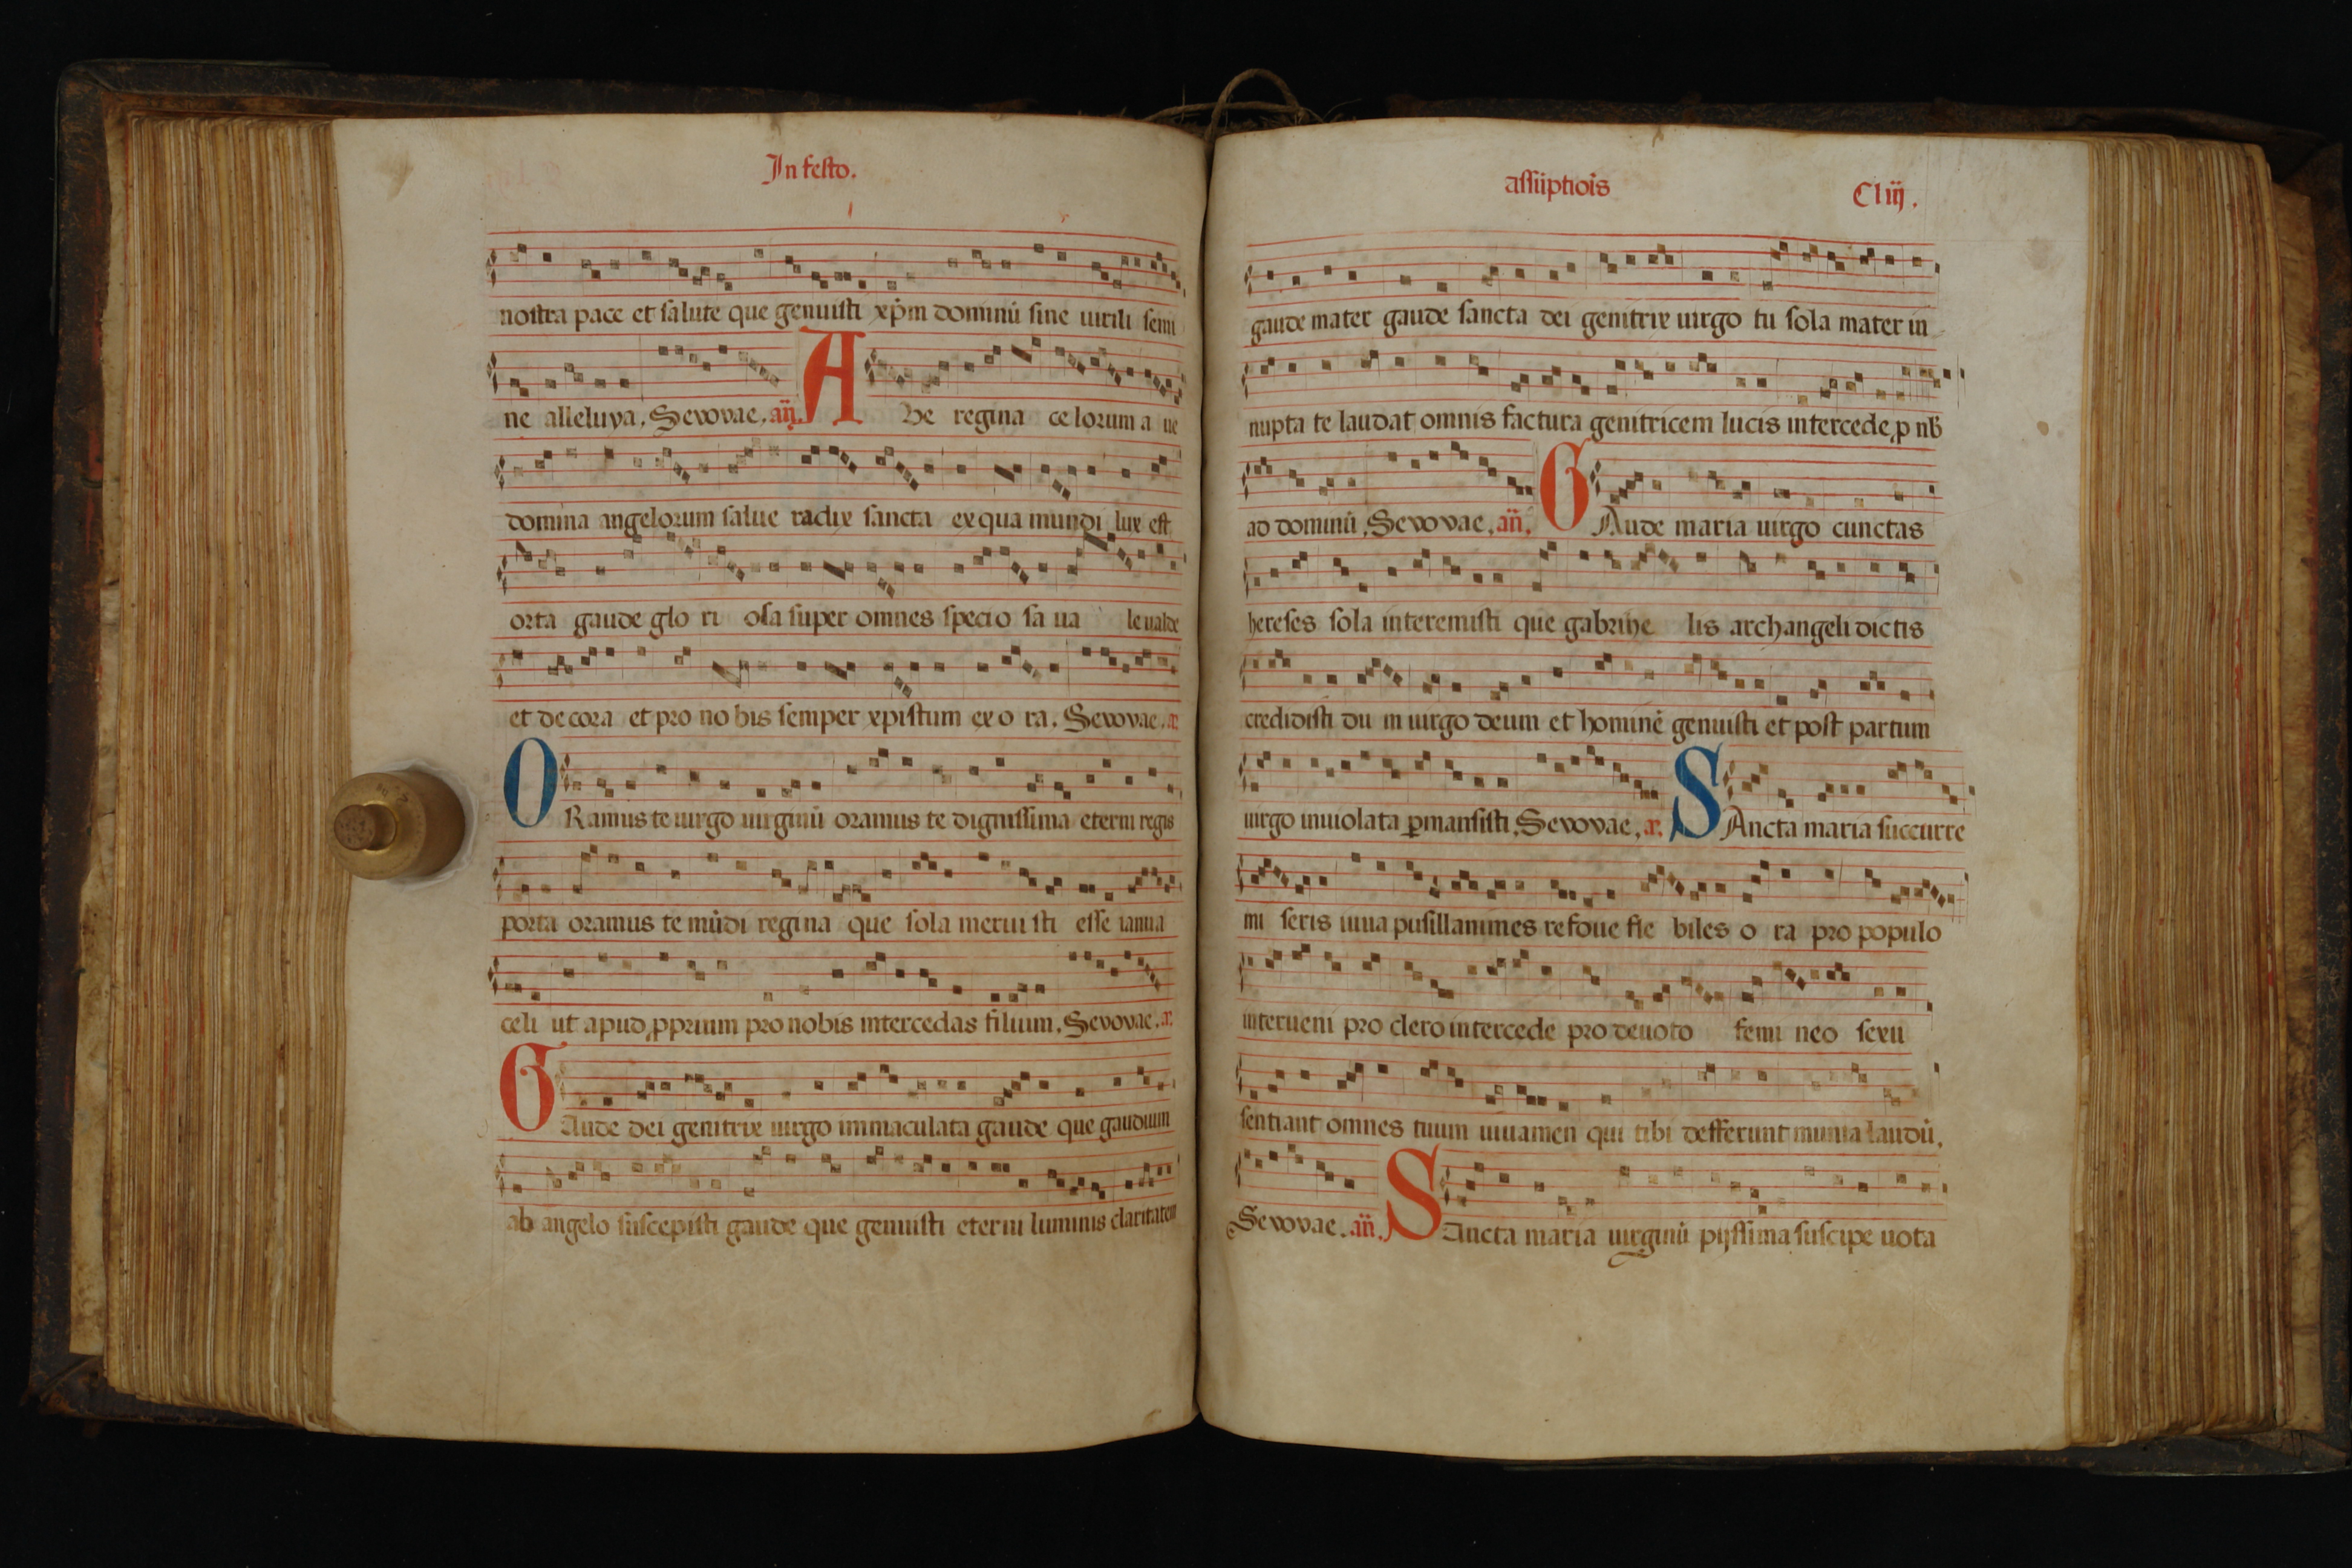 In festo.
nostra pace et salute que genuisti xp̄m dominū sine uirili semi
ne alleluya. Sevovae. añ. A Ve regina ce lorum a ue
domina angelorum salue radix sancta ex qua mundi lux est
orta gaude glo ri osa super omnes specio sa ua le ualde
et decora et pro no bis semper xpistum exo ra. Sevovae. a᷒.
O Ramus te uirgo uirginū oramus te dignissima eterni regis
porta oramus te mūdi regina que sola merui sti esse ianua
celi ut apud ꝓprium pro nobis intercedas filium. Sevovae. a᷒.
G Aude dei genitrix uirgo immaculata gaude que gaudium
ab angelo suscepisti gaude que genuisti eterni luminis claritatem
assūptiōis Cliij.
gaude mater gaude sancta dei genitrix uirgo tu sola mater in
nupta te laudat omnis factura genitricem lucis intercede, p nb̄
ad dominū. Sevovae. añ. G Aude maria uirgo cunctas
hereses sola interemisti que gabrihe lis archangeli dictis
credidisti du m uirgo deum et hominē genuisti et post partum
uirgo inuiolata ꝑmansisti. Sevovae. a᷒. S Ancta maria succurre
mi seris iuua pusillanimes refoue fle biles o ra pro populo
interueni pro clero intercede pro deuoto femi neo sexu
sentiant omnes tuum iuuamen qui tibi defferunt munia laudū.
Sevovae. añ. S Ancta maria uirginū pijssima suscipe uota